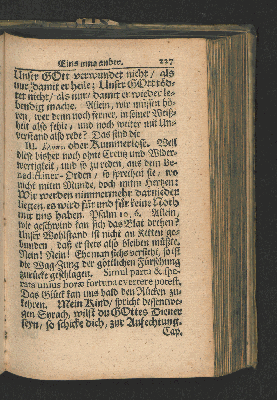 Eins umb ander. 227
Unser GOtt verwundet nicht / als
nur damit er heile; Unser GOtt töd-
tet nicht / als nur damit er wieder le-
bendig mache. Allein, wir müssen hö-
ren, wer denn noch ferner, in seiner Weiß-
heit also fehle, und noch weiter mit Un-
verstand also rede? Das sind die
III. oder Kummerlose. Weil
diese bisher noch ohne Creutz und Wider-
wertigkeit, und so zu reden, aus dem Be-
ned Einer-Orden, so sprechen sie, wo
nicht mitten Munde, doch mitm Hertzen:
Wir werden nimmermehr darnieder
liegen, es wird für und für keine Noth
mit uns haben. Psalm 10, 6. Allein,
wie geschwind kan sich das Blat drehen?
Unser Wohlstand ist nicht an Ketten ge-
bunden, daß er stets also bleiben müste.
Nein! Nein! Ehe man sichs versieht, so ist
die Wag-Zung der göttlichen Fürsehung
zurücke geschlagen. Simul parta & spe-
rata unius horæ fortuna evertere potest,
Das Glück kan uns bald den Rücken zu-
kehren. Mein Kind / spricht dessentwe-
gen Syrach, wilst du GOttes Diener
seyn, so schicke dich, zur Anfechtung.
Cap.